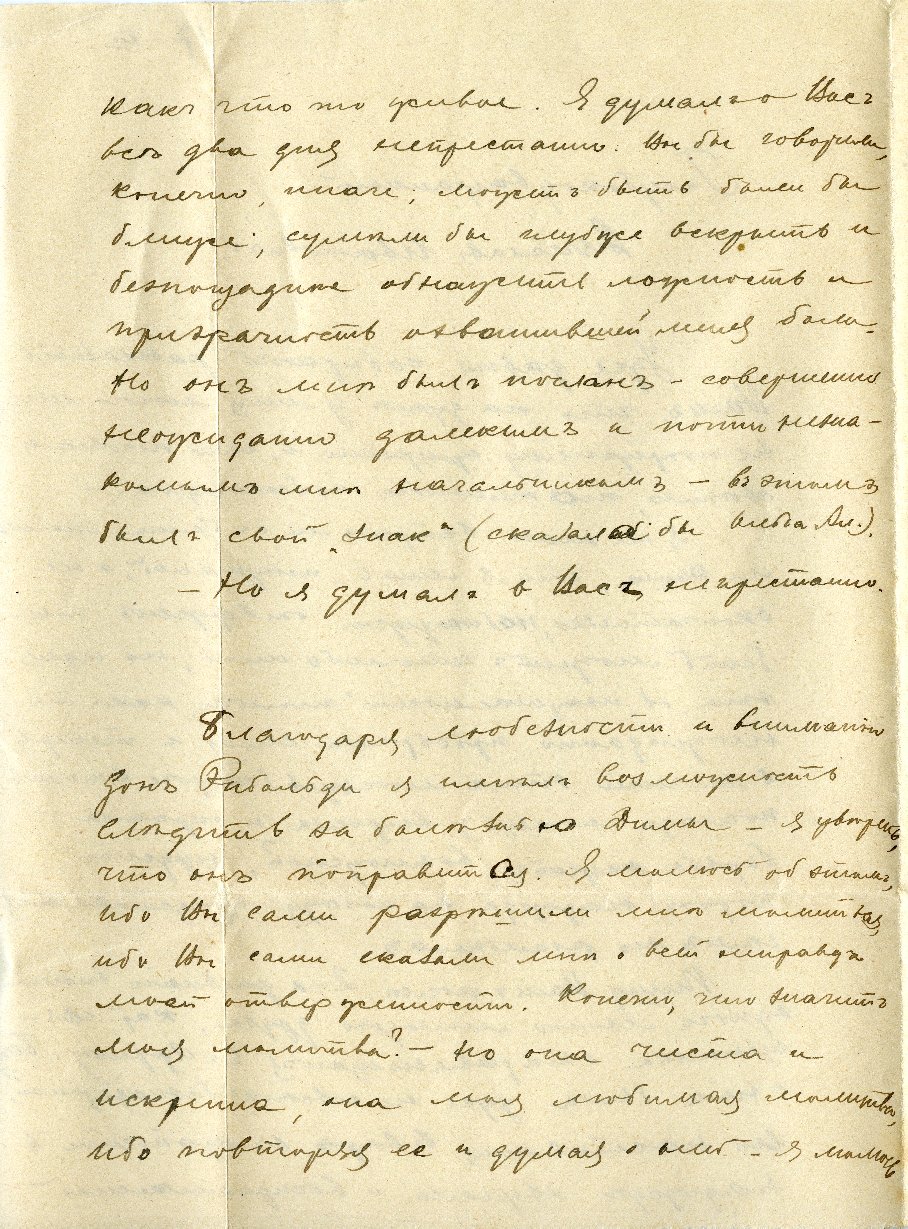 какъ что то живое. Я думалъ о Васъ
всѣ два дня непрестанно. Вы бы говорили,
конечно, иначе; можетъ быть были бы
ближе; сумѣли бы глубже вскрыть и
безпощаднѣе обнажить ложность и
призрачность охватившей меня боли.
Но онъ мнѣ былъ посланъ – совершенно
неожиданно далекимъ и почти незна-
комымъ мнѣ начальникомъ – въ этомъ
былъ свой "знак" (сказала бы Ольга Ал.).
– Но я думалъ о Васъ непрестанно.
Благодаря любезности и вниманію
Донъ Рибальди я имѣлъ возможность
слѣдить за болѣзнью Димы – я увѣренъ,
что онъ поправится. Я молюсь об этомъ,
ибо Вы сами разрѣшили мнѣ молиться,
ибо Вы сами сказали мнѣ о всей неправдѣ
моей отверженности. Конечно, что значитъ
моя молитва? – но она чиста и
искренна, она моя любимая молитва,
ибо повторяя ее и думая о ней – я молюсь